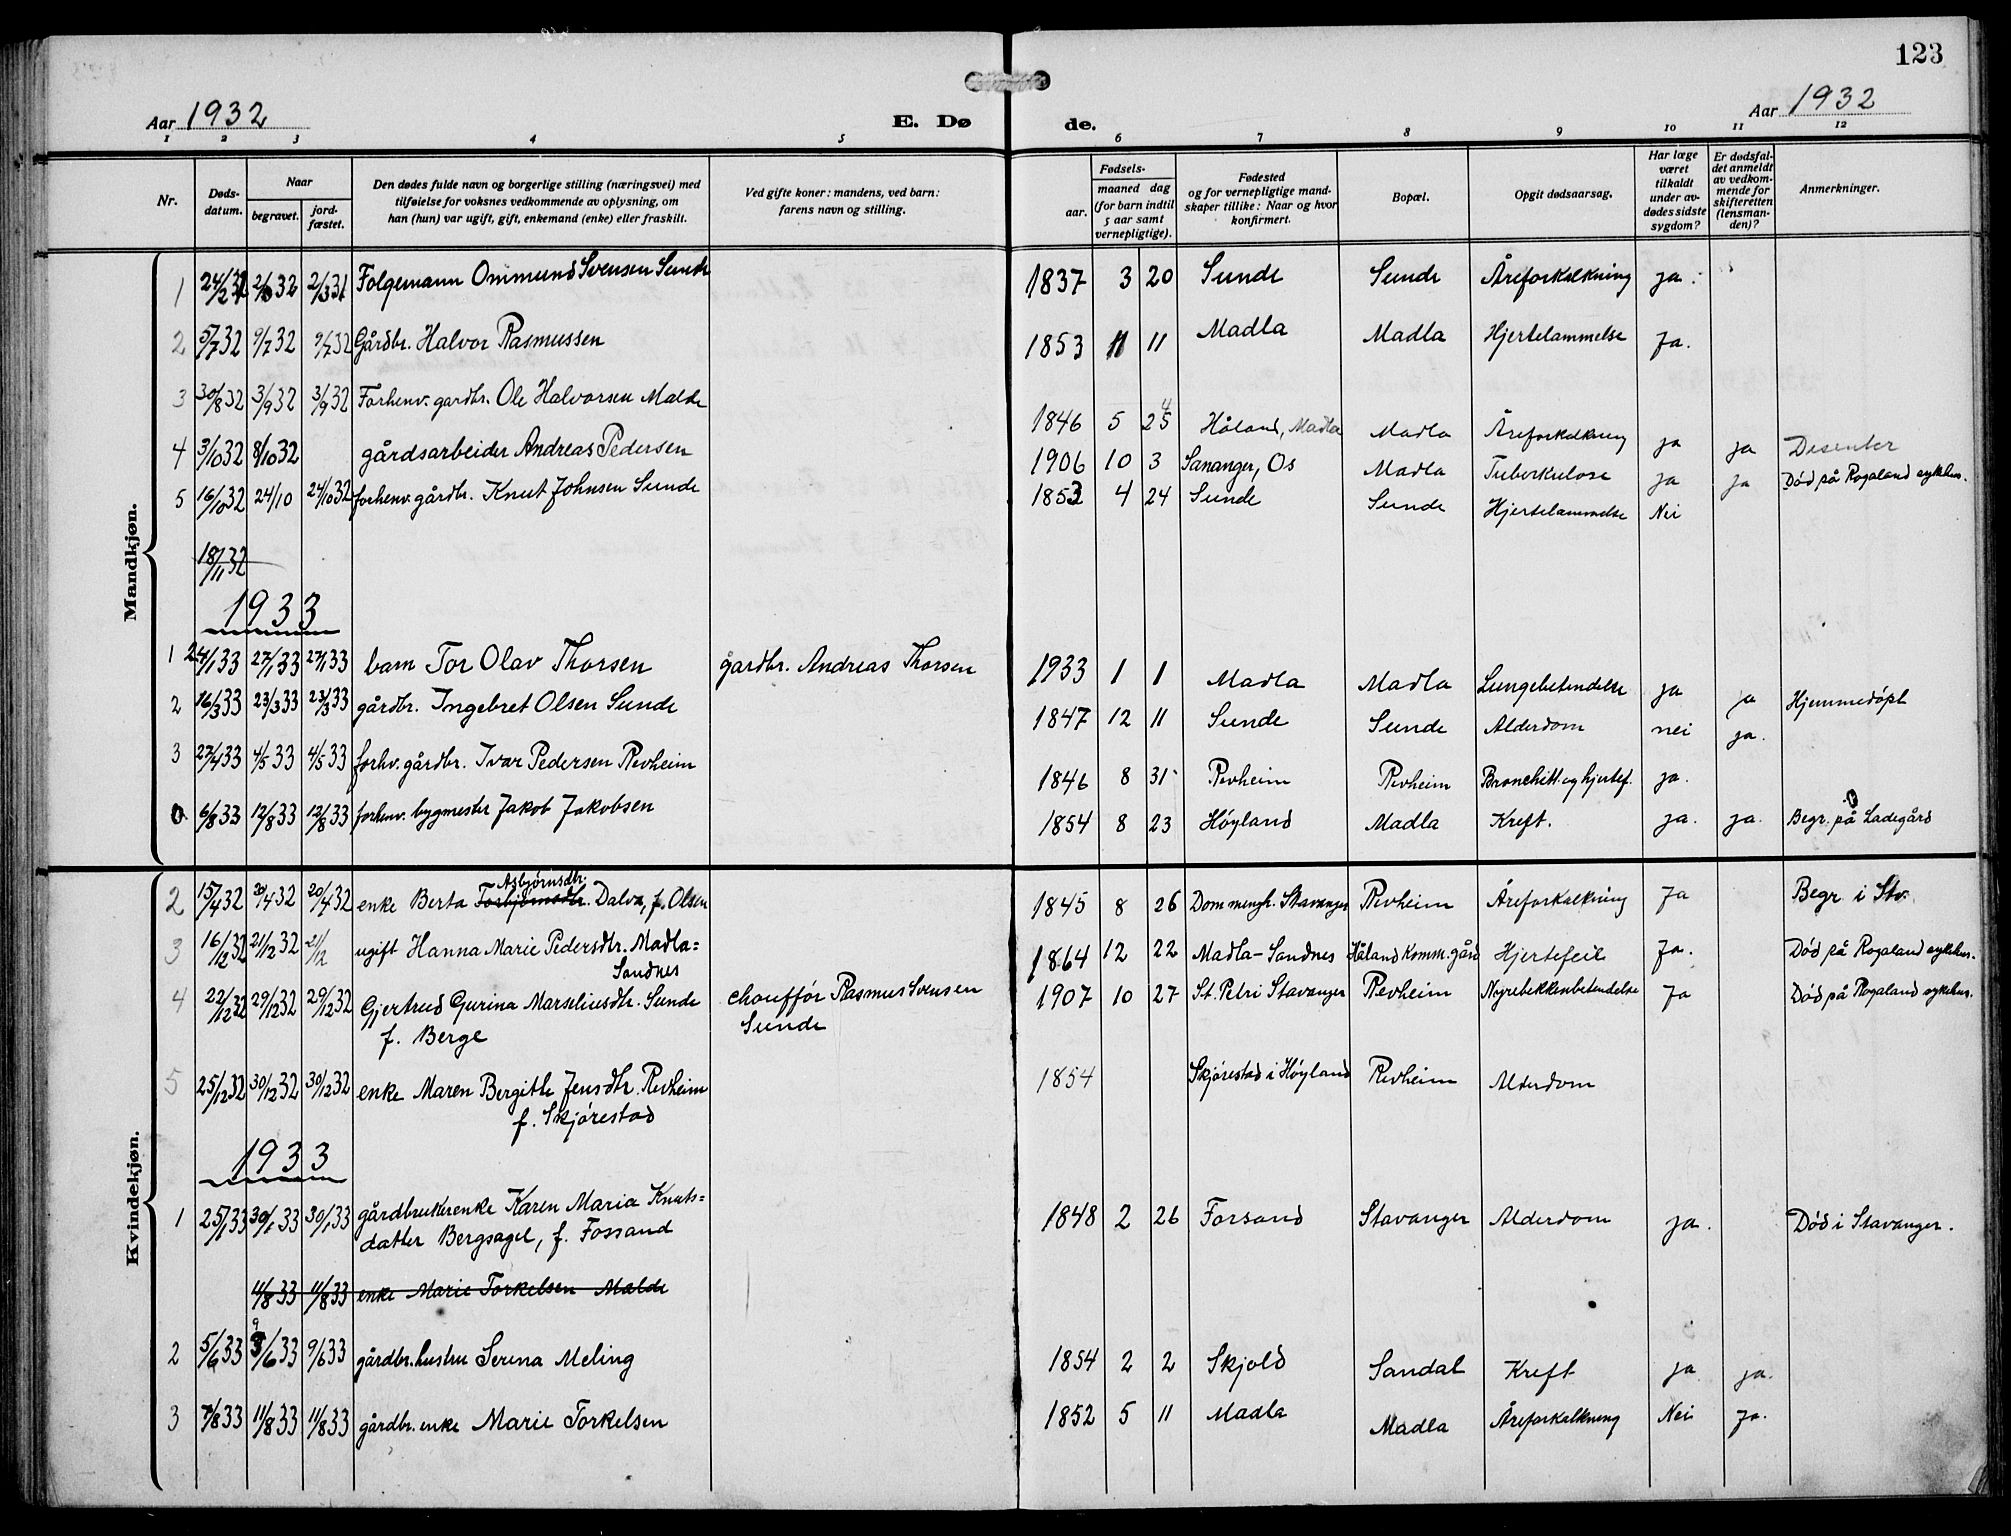 123
Aar 1932 E. Dø de. Aar 1932
1 2 3 4 5 6 7 8 9 10 11 12
Nr. Døds-datum. Naar begravet. jord-fæstet. Den dødes fulde navn og borgerlige stilling (næringsvei) med tilføielse for voksnes vedkommende av oplysning, om han (hun) var ugift, gift, enkemand (enke) eller fraskilt. Ved gifte koner: mandens, ved barn: farens navn og stilling. Fødsels- aar. maaned dag (for barn indtil 5 aar samt vernepligtige). Fødested og for vernepligtige mandskaper tillike: Naar og hvor konfirmert. Bopæl. Opgit dødsaarsag. Har læge været tilkaldt under avdødes sidste sygdom? Er dødsfaldet anmeldt av vedkommende for skifteretten (lensmanden)? Anmerkninger.
Mandkjøn.
1 24/2 32 2/3 32 2/3 31 Følgemann Ommund Svensen Sunde 1837 3 20 Sunde Sunde Åreforkalkning ja.
2 5/7 32 9/7 32 9/7 32 Gårdbr. Halvor Rasmussen 1853 11 11 Madla Madla Hjertelammelse Ja.
3 30/8 32 3/9 32 3/9 32 Forhenv. gardbr. Ole Halvorsen Malde 1846 5 25 4 Håland, Madla Madla Åreforkalkning ja ja Disenter
4 3/10 32 8/10 32 gårdsarbeider Andreas Pedersen 1906 10 3 Sananger, Os Madla Tuberkulose ja ja Død på Rogaland sykehus.
5 16/10 32 24/10 24/10 32 forhenv. gårdbr. Knut Johnsen Sunde 1853 4 24 Sunde Sunde Hjertelammelse Nei
18/11 32
1933
1 24/1 33 27/1 33 27/1 33 barn Tor Olav Thorsen gardbr. Andreas Thorsen 1933 1 1 Madla Madla Lungebetendelse ja ja Hjemmedøpt
2 16/3 33 23/3 33 23/3 33 gårdbr. Ingebret Olsen Sunde 1847 12 11 Sunde Sunde Alderdom nei ja.
3 27/4 33 4/5 33 4/5 33 forhv. gårdbr. Ivar Pedersen Revheim 1846 8 31 Revheim Revheim Bronchitt og hjertef. ja.
0 6/8 33 12/8 33 12/8 33 forhenv. bygmester Jakob Jakobsen 1854 8 23 Høyland Madla Kreft. ja. ja. Begr. på Ladegård
Kvindekjøn.
2 15/4 32 20/4 32 20/4 32 enke Berta Torbjørnsdtr. Asbjørnsdtr. Dalva, f. Olsen 1845 8 26 Dommengh. Stavanger Revheim Åreforkalkning Ja Begr. i Stv.
3 16/12 32 21/12 32 21/12 ugift Hanna Marie Pedersdtr. Madla=
Sandnes 1864 12 22 Madla-Sandnes Håland komm. gård Hjertefeil Ja. Død på Rogaland sykehus.
4 22/12 32 29/12 32 29/12 32 Gjertrud Gurina Marseliusdtr. Sunde chouffør Rasmus Svensen 1907 10 27 St. Petri Stavanger Revheim Nyrebekkenbetendelse Ja Død på Rogaland sykehus.
f. Berge Sunde
5 25/12 32 30/12 32 30/12 32 enke Maren Bergitte Jensdtr. Revheim 1854 Skjørestad i Høyland Revheim Alderdom
f. Skjørestad
1933
1 25/1 33 30/1 33 30/1 33 gårdbrukerenke Karen Maria Knuts= 1848 2 26 Forsand Stavanger Alderdom ja. Død i Stavanger.
datter Bergsagel, f. Fossand
11/8 33 11/8 33 enke Marie Torkelsen Malde
2 5/6 33 9/6 33 9/6 33 gårdbr. hustru Serina Meling 1854 2 2 Skjold Sandal Kreft ja ja.
3 7/8 33 11/8 33 11/8 33 gårdbr. enke Marie Torkelsen 1852 5 11 Madla Madla Åreforkalkning Nei Ja.